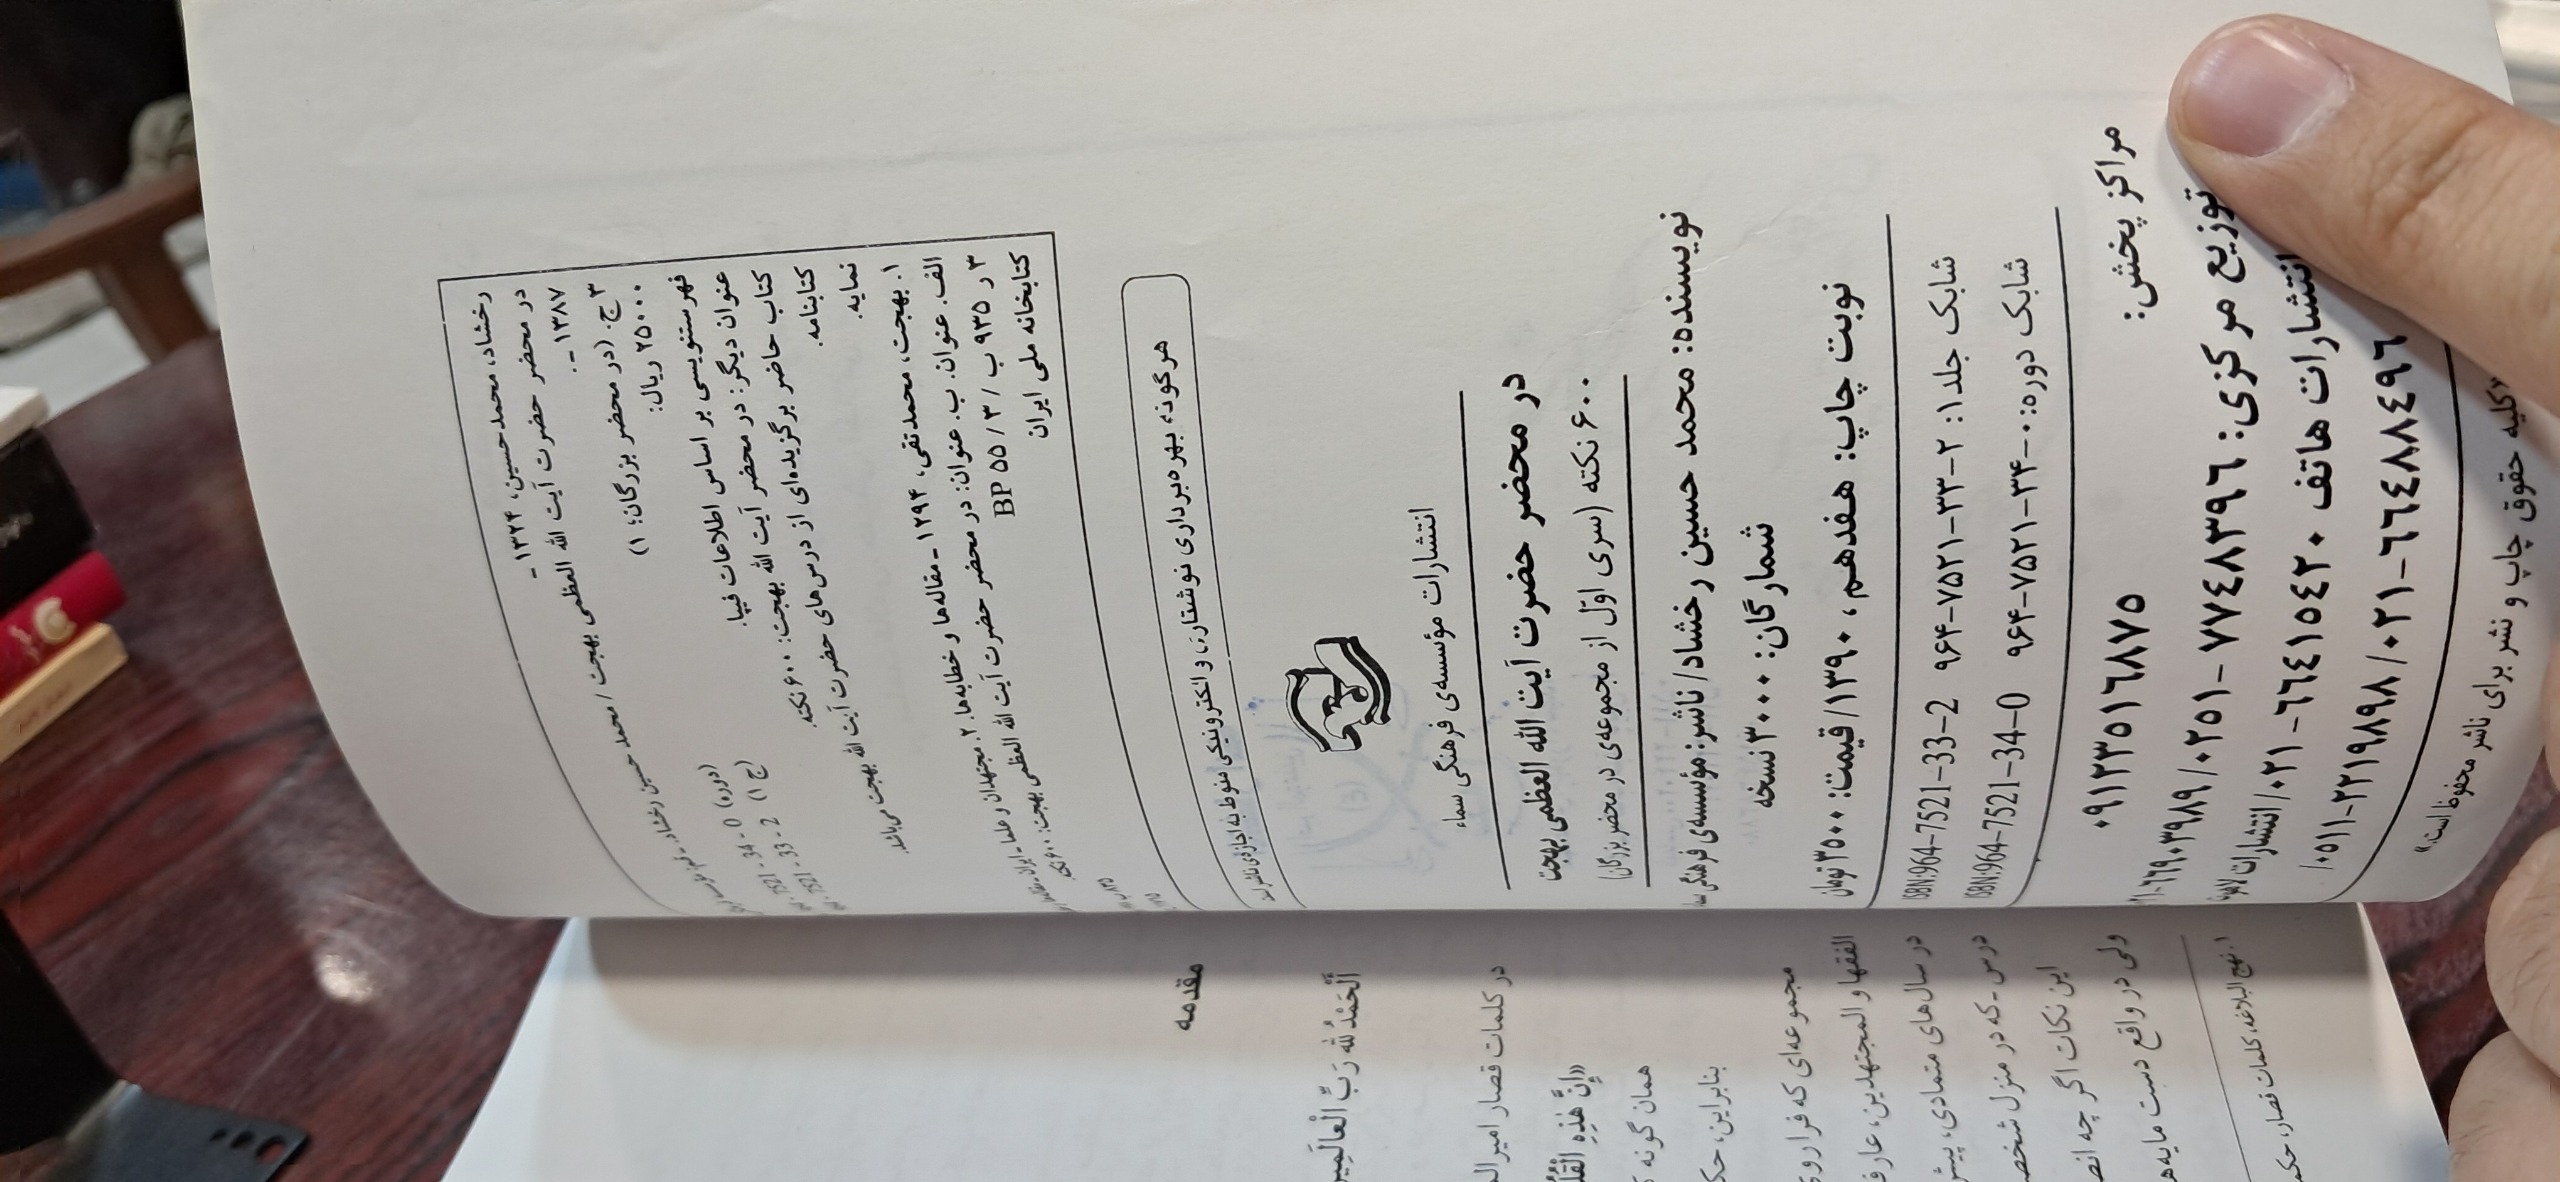 رخشاد، محمدحسین، ۱۳۲۴ -
در محضر حضرت آیت الله العظمی بهجت / محمد حسین رخشاد. - قم: مؤسسه
۱۳۸۷ - .
۳ ج. (در محضر بزرگان؛ ۱)
۲۵۰۰۰ ریال:
7521 - 34 - 0 (دوره)
7521 - 33 - 2 (ج ۱)
فهرستنویسی بر اساس اطلاعات فیپا.
عنوان دیگر: در محضر آیت الله بهجت: ۶۰۰ نکته.
کتاب حاضر برگزیده‌ای از درس‌های حضرت آیت الله بهجت می‌باشد.
کتابنامه.
نمایه.
۱. بهجت، محمدتقی، ۱۲۹۴ - مقاله‌ها و خطابه‌ها. ۲. مجتهدان و علما - ایران
الف. عنوان. ب. عنوان: در محضر حضرت آیت الله العظمی بهجت: ۶۰۰ نکته.
۳ ر ۹۳۵ ب / ۳ / BP ۵۵
کتابخانه ملی ایران
هرگونه بهره‌برداری نوشتاری و الکترونیکی منوط به اجازه‌ی ناشر است
انتشارات مؤسسه‌ی فرهنگی سماء
در محضر حضرت آیت الله العظمی بهجت
۶۰۰ نکته (سری اوّل از مجموعه‌ی در محضر بزرگان)
نویسنده: محمد حسین رخشاد/ ناشر: مؤسسه‌ی فرهنگی سماء
شمارگان: ۳۰۰۰ نسخه
نوبت چاپ: هفدهم، ۱۳۹۰/ قیمت: ۳۵۰۰ تومان
شابک جلد۱: ۲-۳۳-۷۵۲۱-۹۶۴ ISBN:964-7521-33-2
شابک دوره: ۰-۳۴-۷۵۲۱-۹۶۴ ISBN:964-7521-34-0
مراکز پخش:
۰۹۱۲۳۵۱۶۸۷۵
توزیع مرکزی: ۷۷٤۸۳۹٦-۰۲۵۱/ ٦٦۹۰۳۹۸۹-
انتشارات هاتف ۰۲۱-٦٦٤۱۵٤۲۰/ انتشارات
۰۲۱-٦٦٤۸۸٤۹٦/ ۰۵۱۱-۲۲۱۹۸۹۸/
کلیه حقوق چاپ و نشر برای ناشر محفوظ است.»
مقدمه
اَلْحَمْدُ لِلّهِ رَبِّ الْعالَمِینَ
در کلمات قصار
همان گونه
«إِنَّ هٰذِهِ
بنابراین،
مجموعه‌ای که فراروی
الفقها و المجتهدین،
در سال‌های متمادی،
درس - که در منزل
این نکات اگر چه
ولی در واقع دست مایه
۱. نهج البلاغه، کلمات قصار،